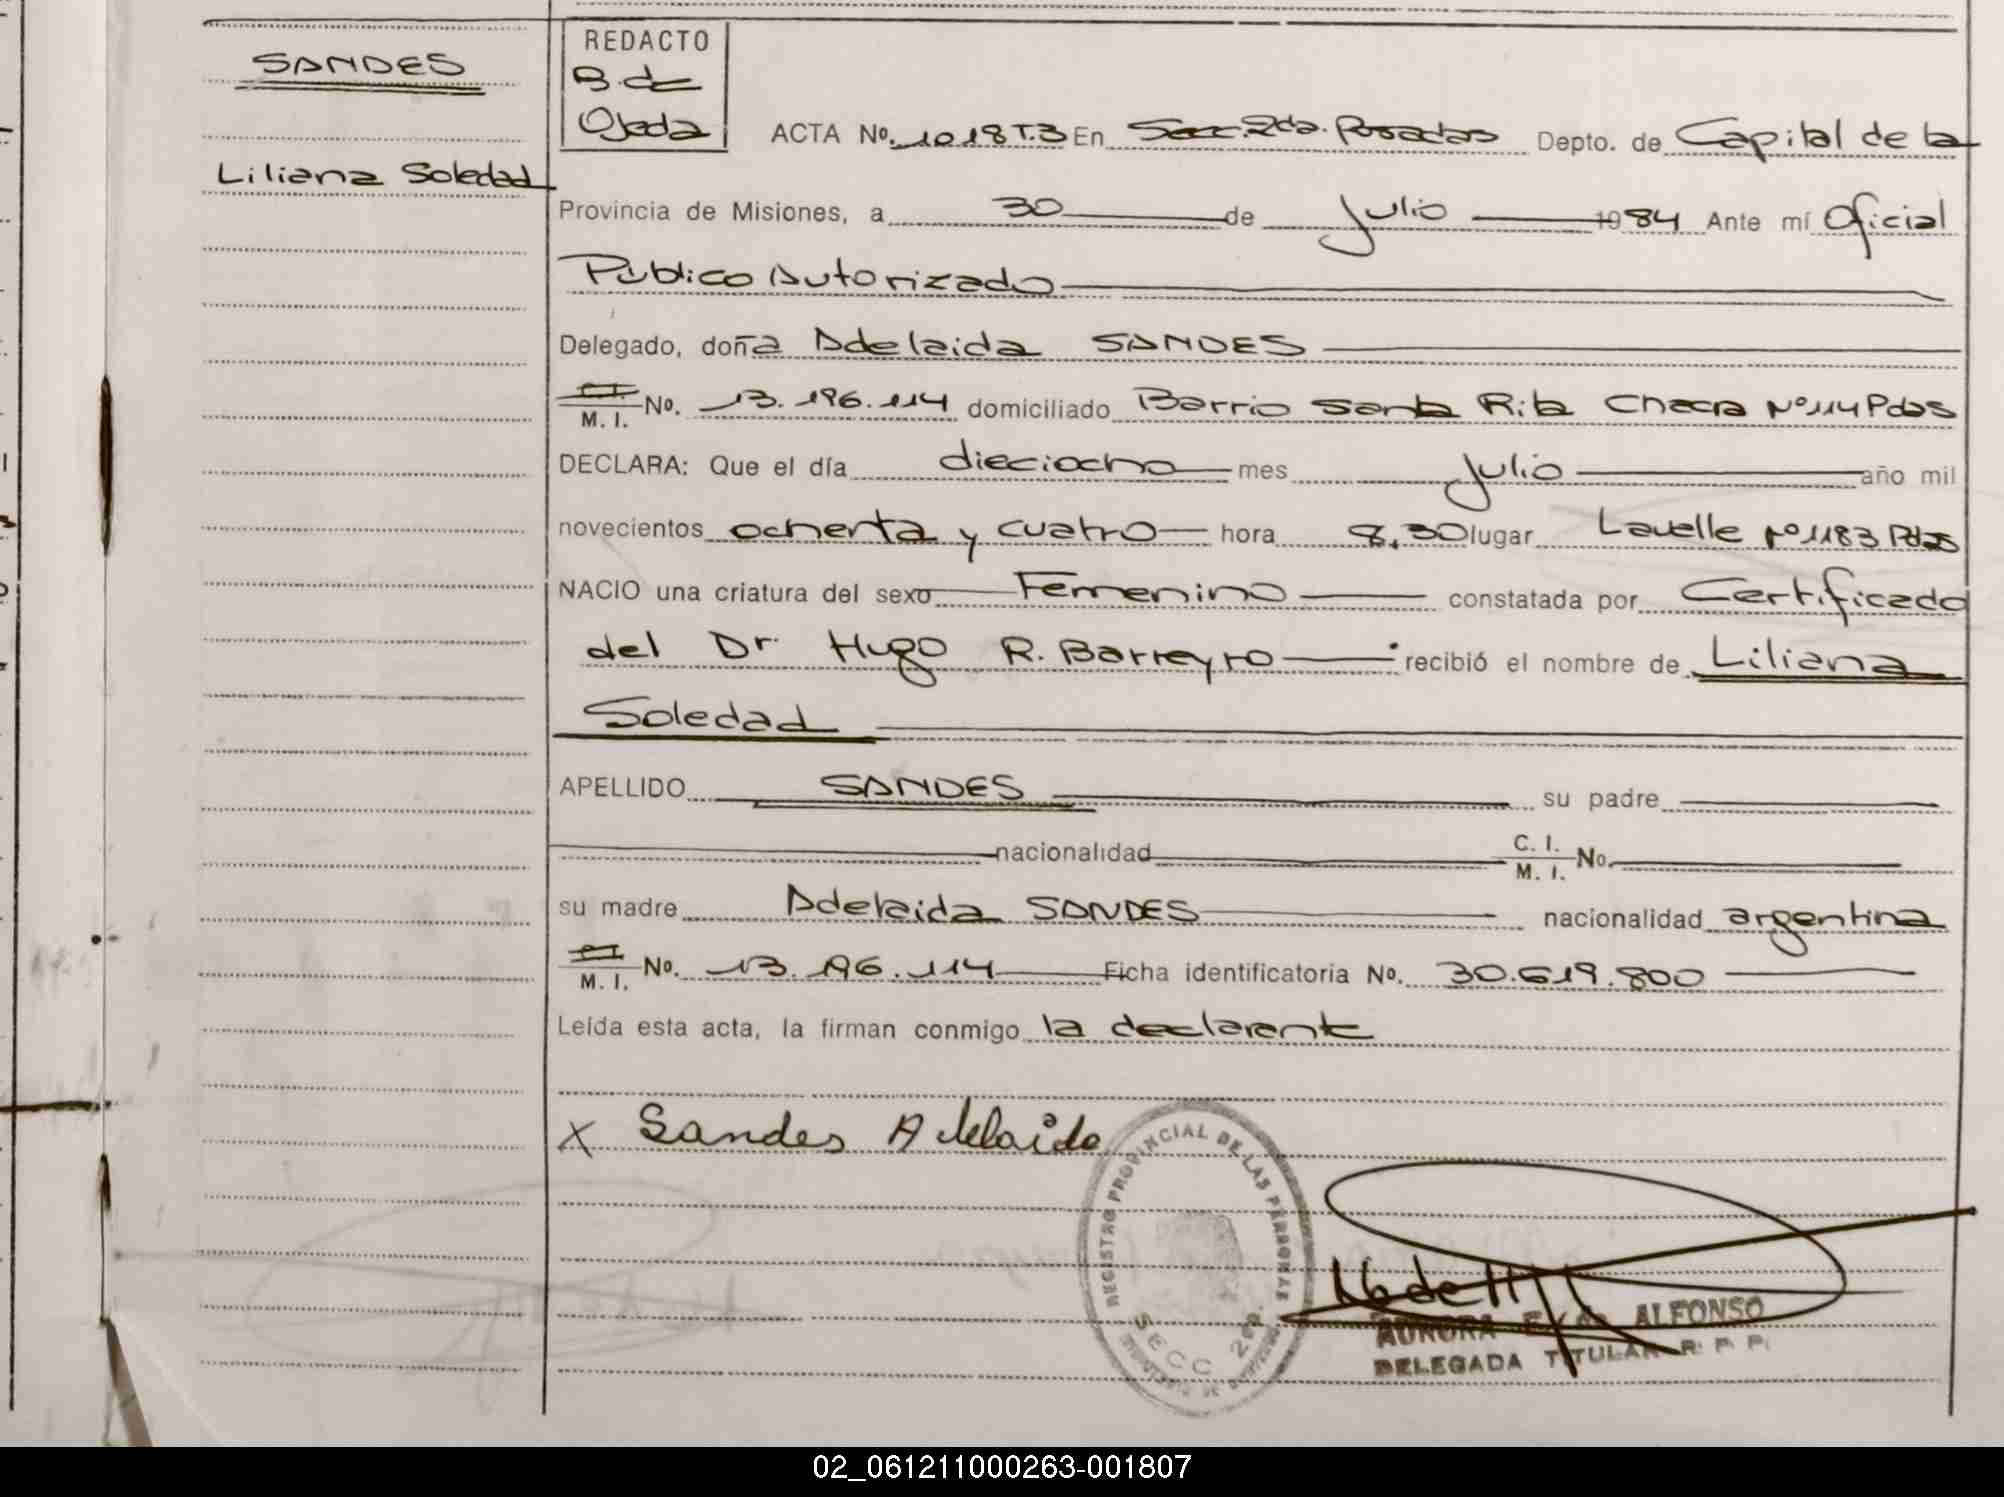 SANDES
Liliana Soledad
REDACTO
B. de
Ojeda
ACTA No. 1018 T.3 En Secc. 2da. Posadas Depto. de Capital de la
Provincia de Misiones, a 30 de Julio 1984 Ante mí Oficial
Público Autorizado
Delegado, doña Adelaida SANDES
C.I. M. I. No. 13.196.114 domiciliado Barrio Santa Rita Chacra Nº 114 Pdas
DECLARA: Que el día dieciocho mes Julio año mil
novecientos ochenta y cuatro hora 8,30 lugar Lavalle Nº 1183 Pdas
NACIO una criatura del sexo Femenino constatada por Certificado
del Dr. Hugo R. Barreyro recibió el nombre de Liliana
Soledad
APELLIDO SANDES su padre
nacionalidad C. I. M. I. No.
su madre Adelaida SANDES nacionalidad argentina
C.I. M. I. No. 13.196.114 Ficha identificatoria No. 30.619.800
Leída esta acta, la firman conmigo la declarante
x Sandes Adelaida
REGISTRO PROVINCIAL DE LAS PERSONAS
SECC 2da.
AURORA E. V. de ALFONSO
DELEGADA TITULAR R. P. P.
02_061211000263-001807